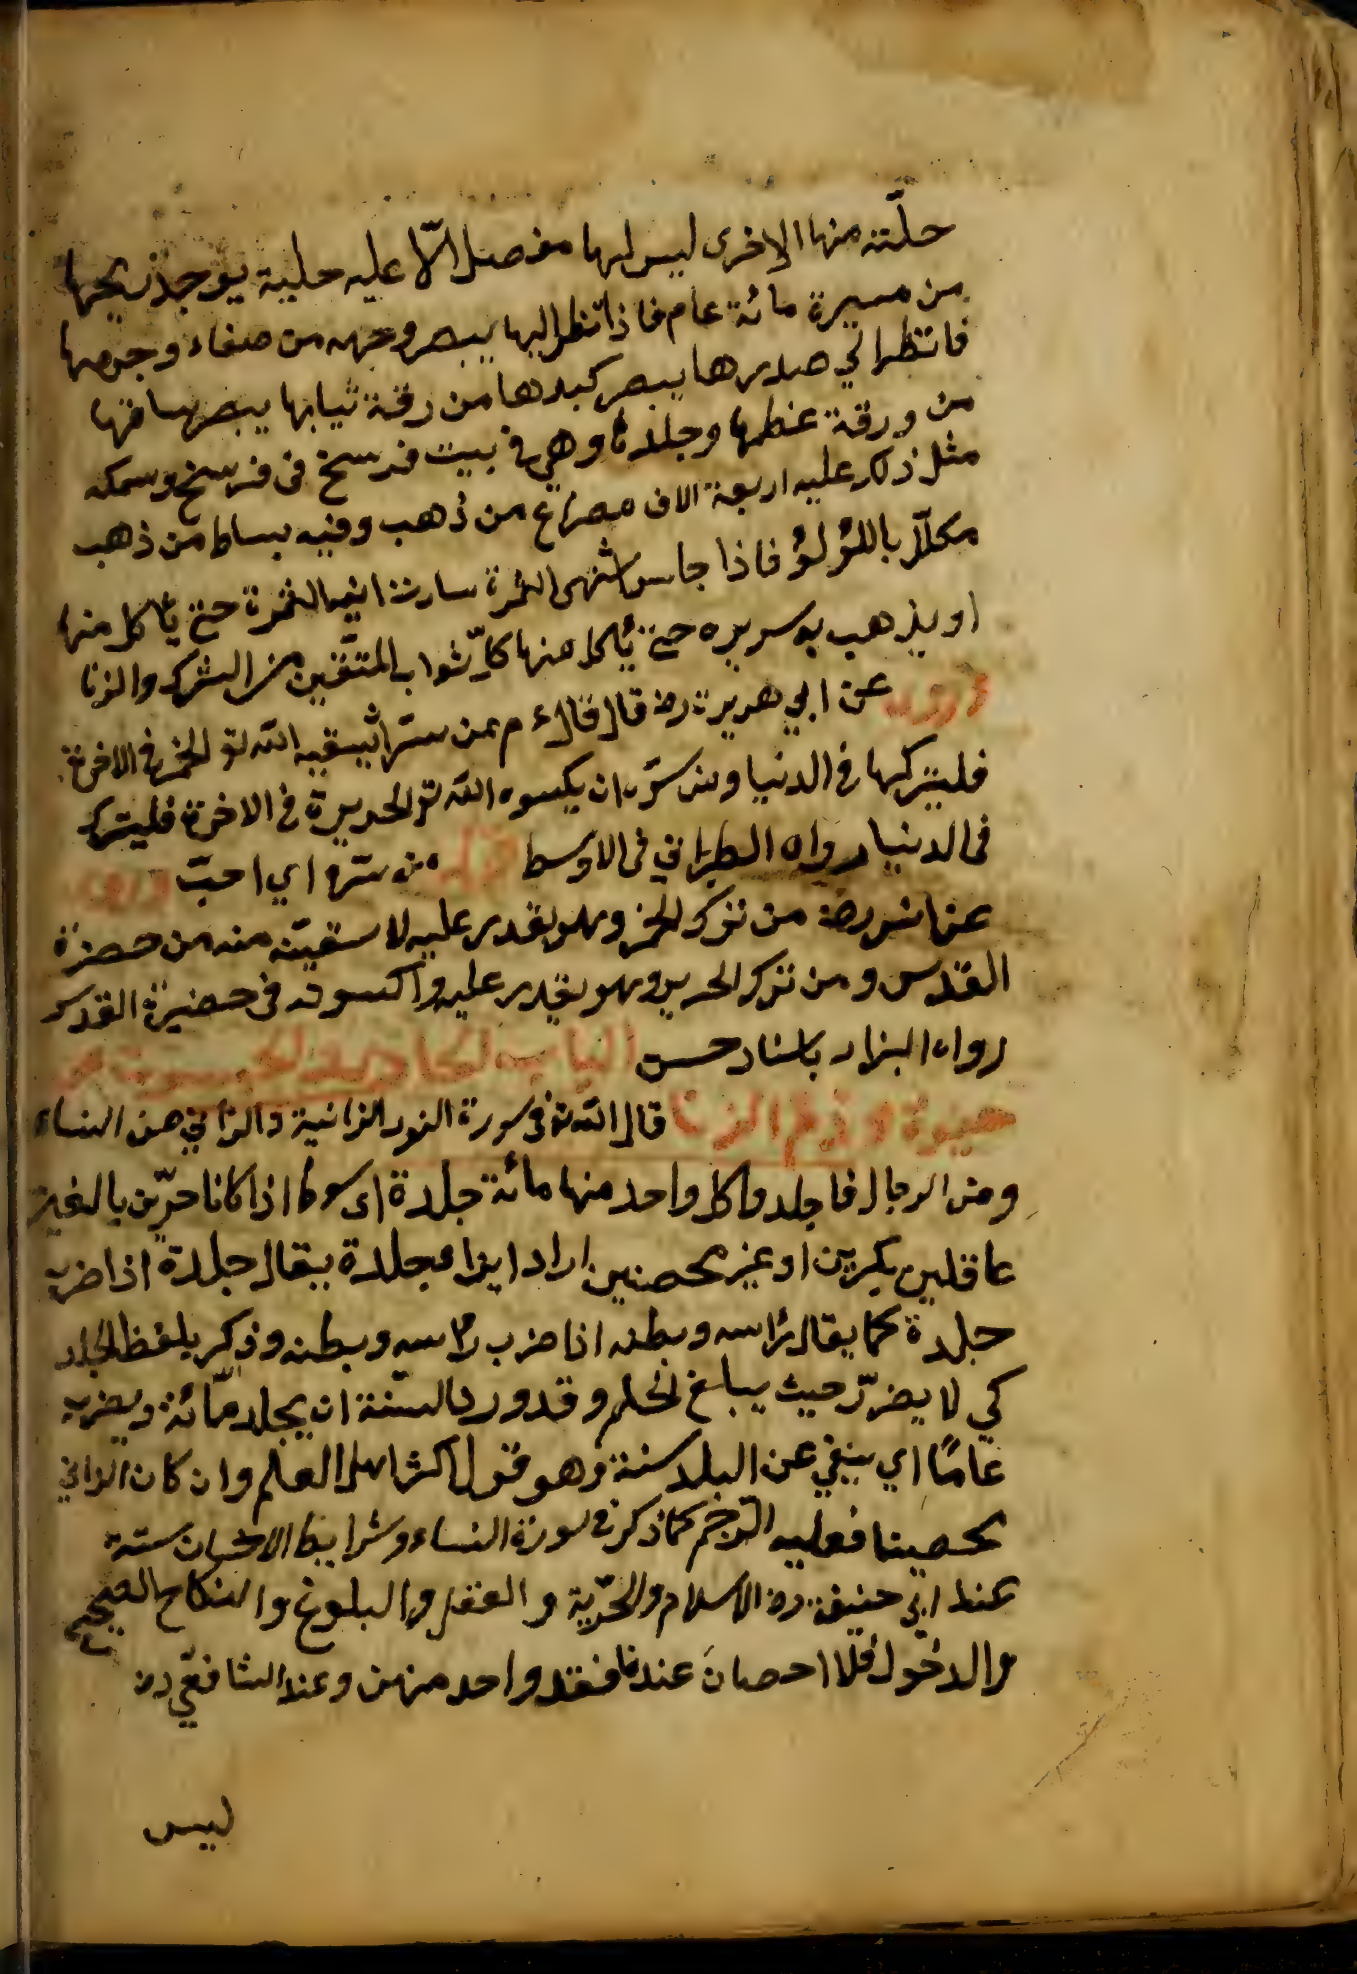 حلّته منها الاخرى ليس لها مفصل الّا عليه حلية يوجد ريحها
من مسيرة مائة عام فاذا نظر اليها يبصر وجهه من صفاء وجهها
فانظر الي صدرها يبصر كبدها من رقة ثيابها يبصر ساقها
من ورقة عظمها وجلدها وهي في بيت فرسخ في فرسخ وسمكه
مثل ذلك عليه اربعة الاف مصراع من ذهب وفيه بساط من ذهب
مكلّلا باللؤلؤ فاذا جلس اشتهى الثمرة سارت اليه الثمرة حتى يأكل منها
او يذهب به سريره حتى يأكل منها كل ثواب المتقين من الشرك والزنا
وروي عن ابي هريرة رض قال قال ءم من سرّ ان يسقيه الله تع الخمر في الاخرة
فليتركها في الدنيا ومن سرّه ان يكسوه الله تع الحريرة في الاخرة فليترك
في الدنيا رواه الطبراني في الاوسط قوله من سرّه اي احبّ وروي
عن انس رض من ترك الخمر وهو يقدر عليه لاسقينّه منه من حضرة
القدس ومن ترك الحرير وهو يقدر عليه واكسونه في حضيرة القدس
رواه البزار باسناد حسن الباب الحادي والخمسون في
وذم الزنا قال الله تع في سورة النور الزانية والزاني من النساء
ومن الرجال فاجلدوا كل واحد منهما مائة جلدة اي سوطا اذا كانا حرّين بالغين
عاقلين بكرين او غير محصنين اراد ايزا فجلدة يقال جلدة اذا ضرب
جلدة كما يقال رأسه وبطنه اذا ضرب رأسه وبطنه وذكر بلفظ الجلد
كي لا يضرّ حيث يبلغ لحلم وقد ورد السنة ان يجلد مّائة ويضرب
عامًا اي ينفي عن البلد سنة وهو قول اكثر اهل العلم وان كان الزاني
محصينا فعليه الرّجم كما ذكر في سورة النساء وشرايط الاحصان ستة
عند ابي حنيفة رض الاسلام والحرّية والعقل والبلوغ والنكاح الصحيح
والدخول فلا احصان عندنا فقد واحد منهن وعند الشافعي رض
ليس